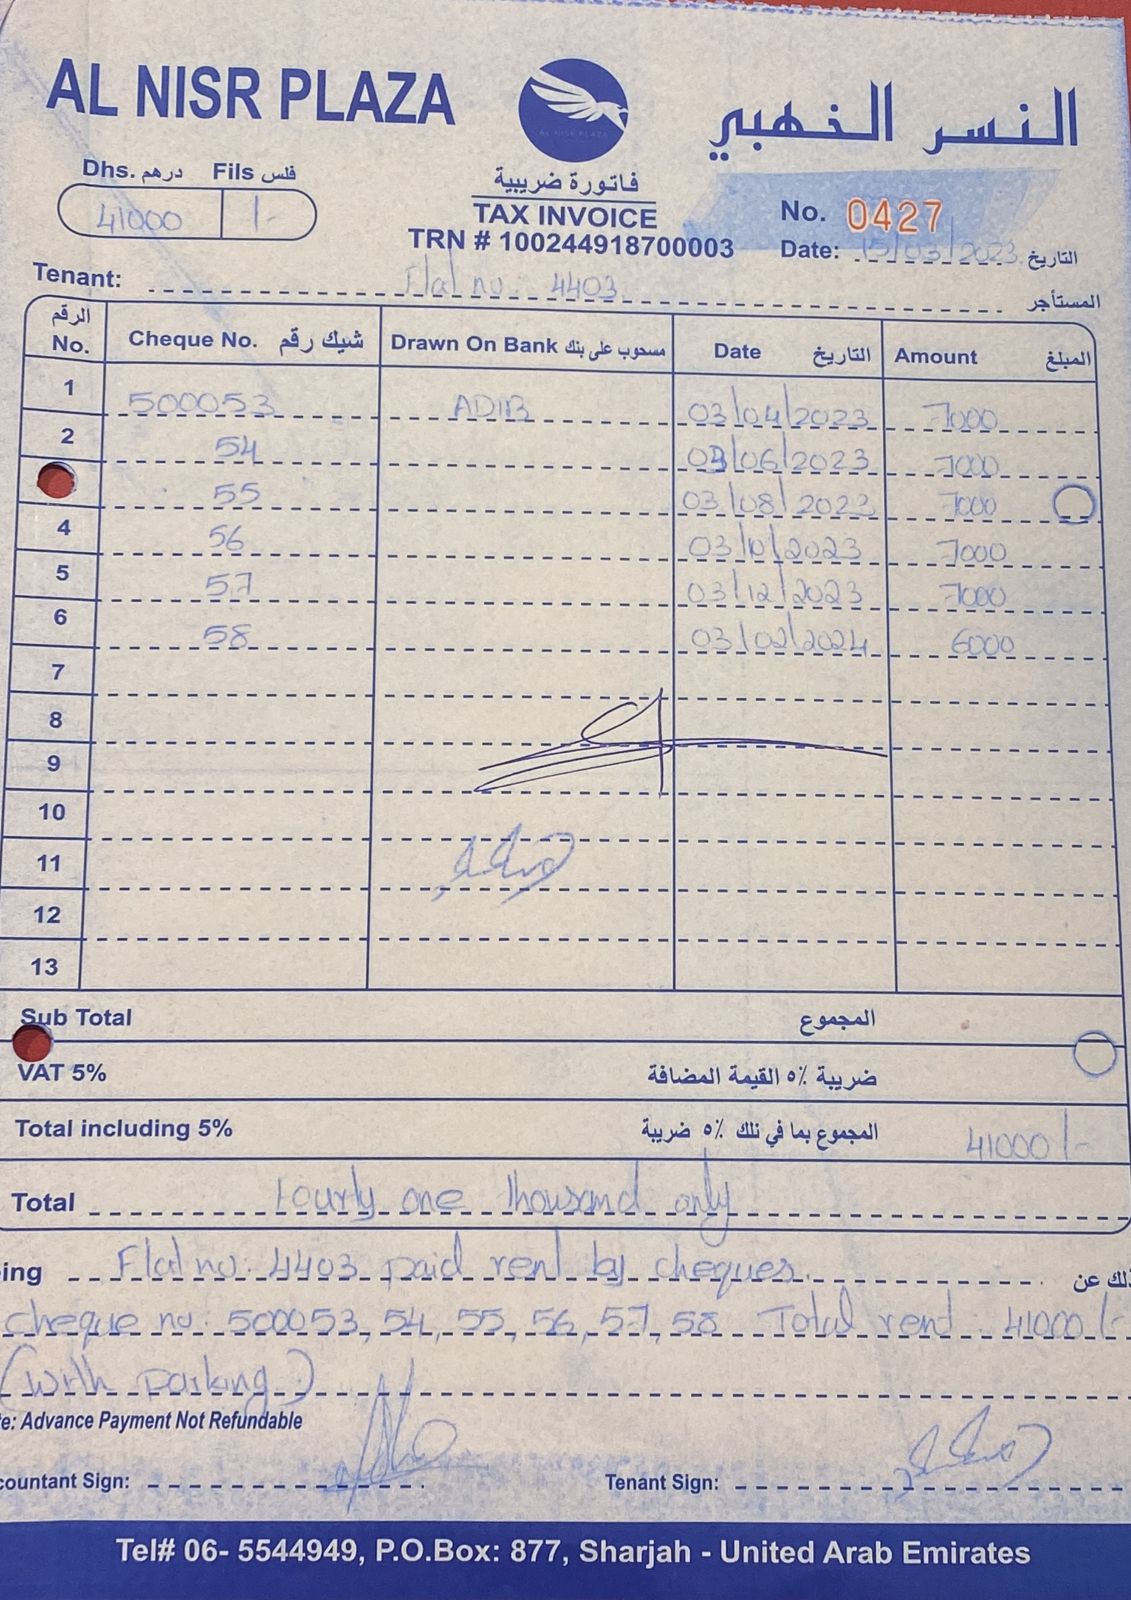 AL NISR PLAZA
النسر الذهبي
AL NISR PLAZA
Dhs. درهم Fils فلس
41000 /-
فاتورة ضريبية
TAX INVOICE
TRN # 100244918700003
No. 0427
Date: 15/03/2023 التاريخ
Tenant: Flat no: 4403 المستأجر
الرقم No. Cheque No. شيك رقم Drawn On Bank مسحوب على بنك Date التاريخ Amount المبلغ
1 500053 ADIB 03/04/2023 7000
2 54 03/06/2023 7000
55 03/08/2023 7000
4 56 03/10/2023 7000
5 57 03/12/2023 7000
6 58 03/02/2024 6000
7
8
9
10
11
12
13
Sub Total المجموع
VAT 5% ضريبة ٥٪ القيمة المضافة
Total including 5% المجموع بما في ذلك ٥٪ ضريبة 41000/-
Total Fourty one thousand only
ing Flat no: 4403 paid rent by cheques. ذلك عن
cheque no: 500053, 54, 55, 56, 57, 58 Total rent: 41000/-
(with parking)
e: Advance Payment Not Refundable
countant Sign: Tenant Sign:
Tel# 06- 5544949, P.O.Box: 877, Sharjah - United Arab Emirates